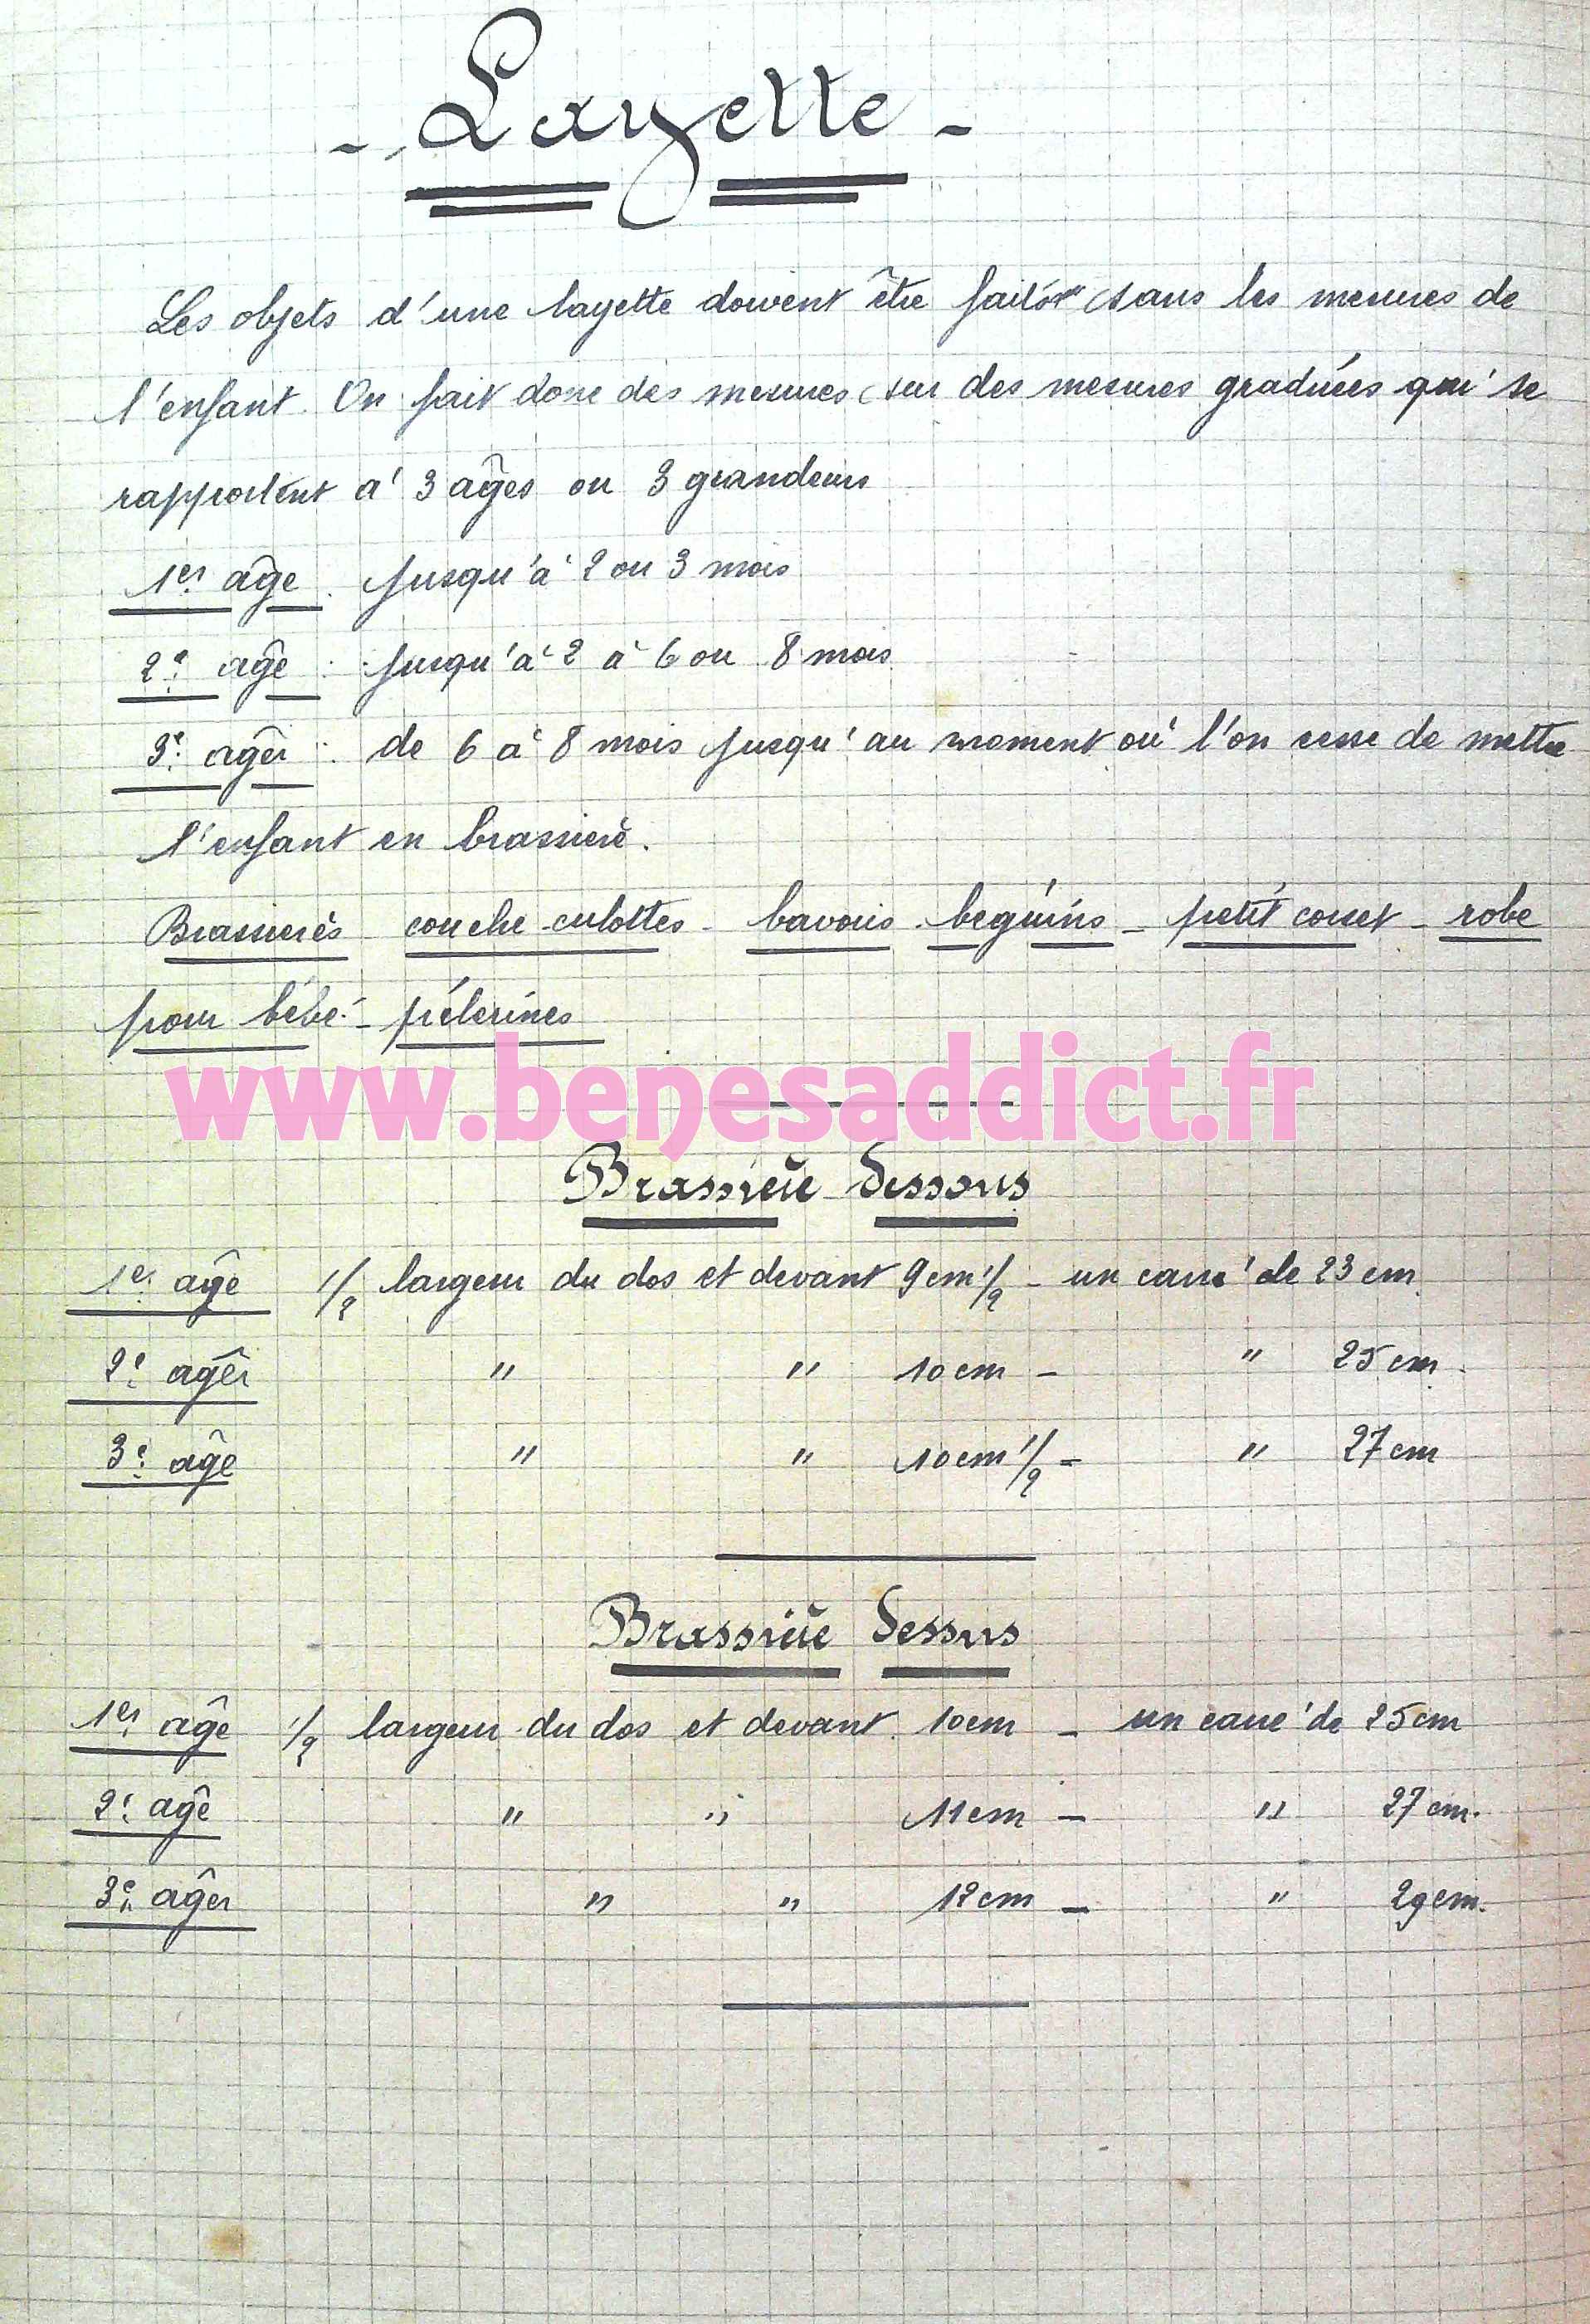 - Layette -
Les objets d'une layette doivent être faits sans les mesures de
l'enfant. On fait donc des mesures sur des mesures graduées qui se
rapportent à 3 âges ou 3 grandeurs
1er âge : jusqu'à 2 ou 3 mois
2e âge : jusqu'à 2 à 6 ou 8 mois
3e âger : de 6 à 8 mois jusqu'au moment où l'on cesse de mettre
l'enfant en brassière.
Brassières couche-culottes - bavoirs - béguins - petit corset - robe
pour bébé - pélerines
www.benesaddict.fr
Brassière dessous
1er âge 1/2 largeur du dos et devant 9cm 1/2 - un carré de 23 cm.
2e âger " " 10 cm - " 25 cm.
3e âge " " 10cm 1/2 - " 27 cm
Brassière dessus
1er âge 1/2 largeur du dos et devant 10cm - un carré de 25cm
2e âge " " 11cm - " 27 cm.
3e âger " " 12cm - " 29cm.